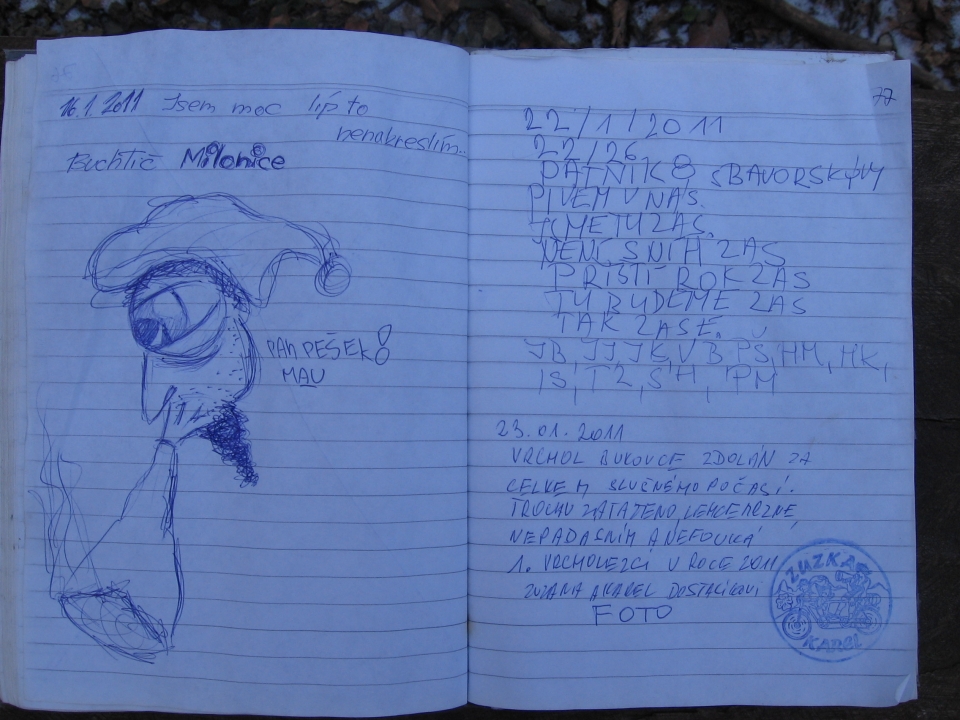 16.1.2011 Jsem moc líp to
nenakreslím..
Buchtič Milonice
PAN PEŠEK!
MAU
77
22/1/2011
22/26
PÁTNÍK S BAVORSKÝM
PIVEM V NÁS.
JSME TU ZAS.
NENÍ SNÍH ZAS
PŘÍŠTÍ ROK ZAS
TU BUDEME ZAS
TAK ZASE.
JB, JJ, JK, VB, PŠ, HM, HK,
IS, TZ, SH, PM
23.01.2011
VRCHOL BUKOVCE ZDOLÁN ZA
CELKEM SLUČNÉHO POČASÍ.
TROCHU ZATAŽENO, LEHCE MRZNE,
NEPADÁ SNÍH A NEFOUKÁ
1. VRCHOLEZCI V ROCE 2011
ZUZANA A KAREL DOSTALÍKOVI
FOTO
ZUZKA
KAREL